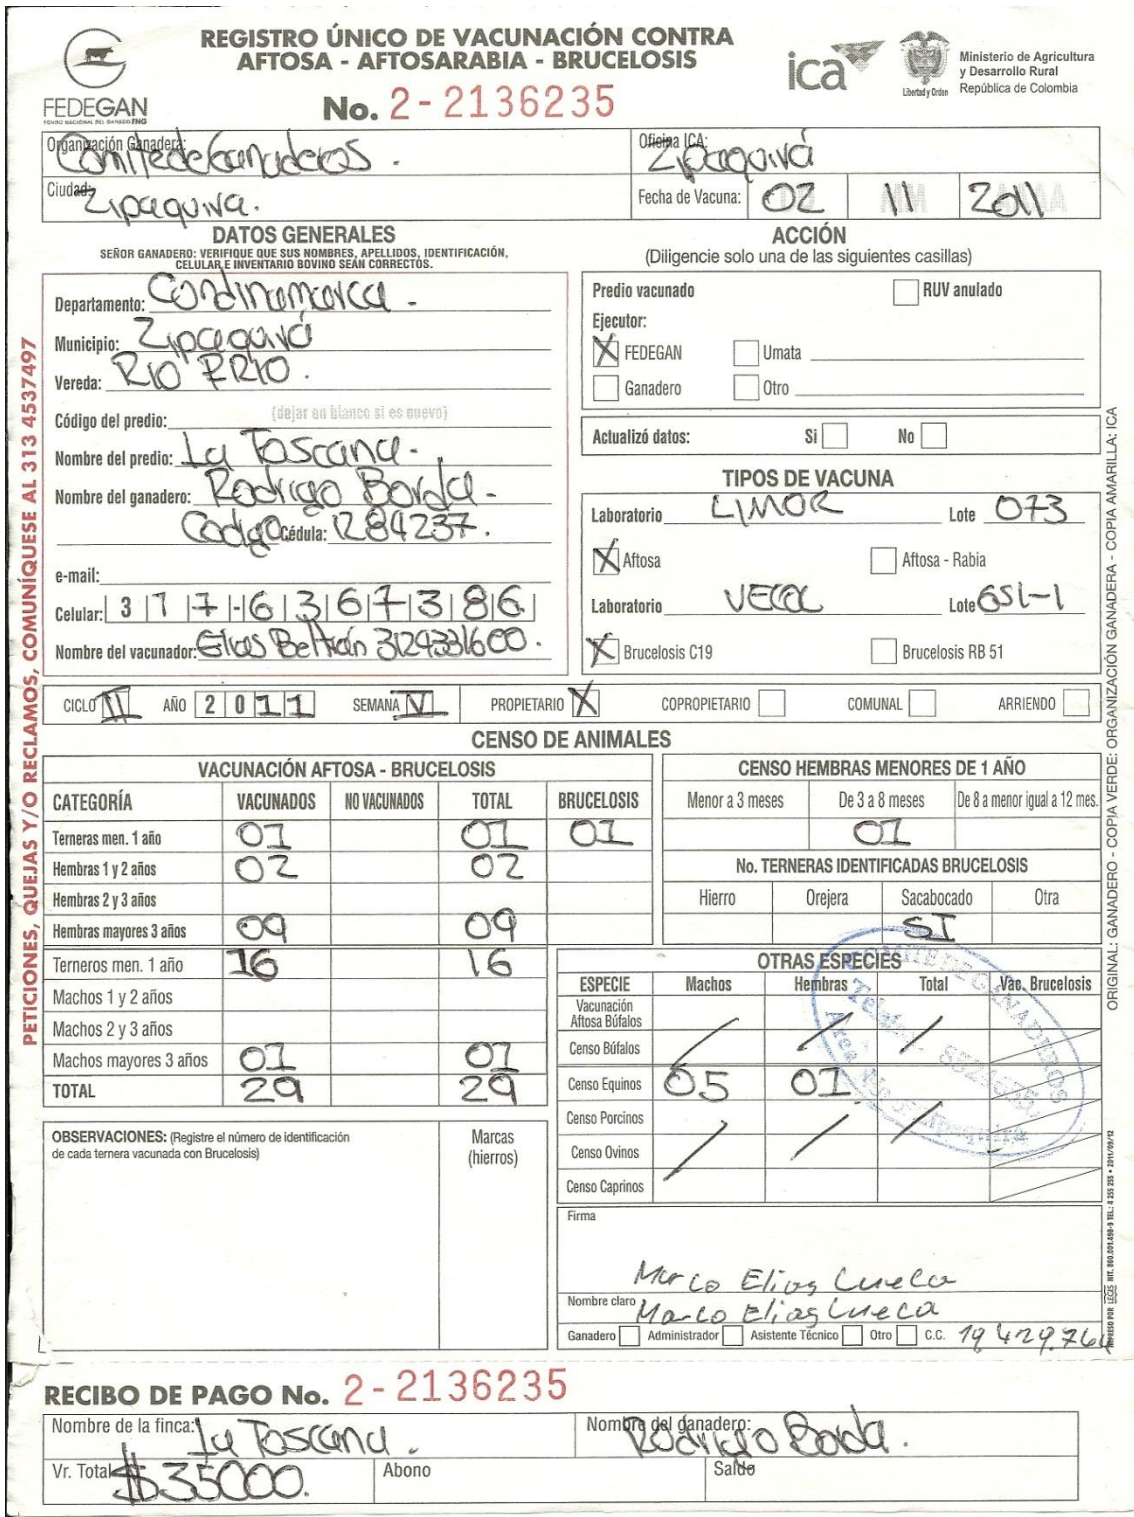 REGISTRO ÚNICO DE VACUNACIÓN CONTRA
AFTOSA - AFTOSARABIA - BRUCELOSIS
No. 2-2136235
FEDEGAN
FONDO NACIONAL DEL GANADO FNG
ica
Libertad y Orden
Ministerio de Agricultura
y Desarrollo Rural
República de Colombia
Organización Ganadera: Comite de Ganaderos .
Oficina ICA: Zipaquivá
Ciudad: Zipaquiva.
Fecha de Vacuna: 02 11 2011
DATOS GENERALES
SEÑOR GANADERO: VERIFIQUE QUE SUS NOMBRES, APELLIDOS, IDENTIFICACIÓN,
CELULAR E INVENTARIO BOVINO SEAN CORRECTOS.
Departamento: Condinamarca .
Municipio: Zipaquivá
Vereda: RIO FRIO .
Código del predio: (dejar en blanco si es nuevo)
Nombre del predio: La Toscana .
Nombre del ganadero: Rodrigo Borda -
Codigo Cédula: 1284237.
e-mail:
Celular: 3 1 7 7 - 6 3 6 7 3 8 6
Nombre del vacunador: Elias Beltrán 3124331600 .
ACCIÓN
(Diligencie solo una de las siguientes casillas)
Predio vacunado RUV anulado
Ejecutor:
X FEDEGAN Umata
Ganadero Otro
Actualizó datos: Si No
TIPOS DE VACUNA
Laboratorio LIMOR Lote 073
X Aftosa Aftosa - Rabia
Laboratorio VECOL Lote GSL-1
X Brucelosis C19 Brucelosis RB 51
CICLO II AÑO 2 0 1 1 SEMANA VI PROPIETARIO X COPROPIETARIO COMUNAL ARRIENDO
CENSO DE ANIMALES
VACUNACIÓN AFTOSA - BRUCELOSIS
CATEGORÍA VACUNADOS NO VACUNADOS TOTAL BRUCELOSIS
Terneras men. 1 año 01 01 01
Hembras 1 y 2 años 02 02
Hembras 2 y 3 años
Hembras mayores 3 años 09 09
Terneros men. 1 año 16 16
Machos 1 y 2 años
Machos 2 y 3 años
Machos mayores 3 años 01 01
TOTAL 29 29
CENSO HEMBRAS MENORES DE 1 AÑO
Menor a 3 meses De 3 a 8 meses De 8 a menor igual a 12 mes.
01
No. TERNERAS IDENTIFICADAS BRUCELOSIS
Hierro Orejera Sacabocado Otra
SI
OTRAS ESPECIES
ESPECIE Machos Hembras Total Vac. Brucelosis
Vacunación
Aftosa Búfalos
Censo Búfalos
Censo Equinos 05 01
Censo Porcinos
Censo Ovinos
Censo Caprinos
COMITE DE GANADEROS
OBSERVACIONES: (Registre el número de identificación
de cada ternera vacunada con Brucelosis)
Marcas
(hierros)
Firma
Marco Elias Cueca
Nombre claro Marco Elias Cueca
Ganadero Administrador Asistente Técnico Otro C.C. 19 429.764
RECIBO DE PAGO No. 2-2136235
Nombre de la finca: La Toscana .
Nombre del ganadero: Rodrigo Borda .
Vr. Total $35000. Abono Saldo
PETICIONES, QUEJAS Y/O RECLAMOS, COMUNÍQUESE AL 313 4537497
ORIGINAL: GANADERO - COPIA VERDE: ORGANIZACIÓN GANADERA - COPIA AMARILLA: ICA